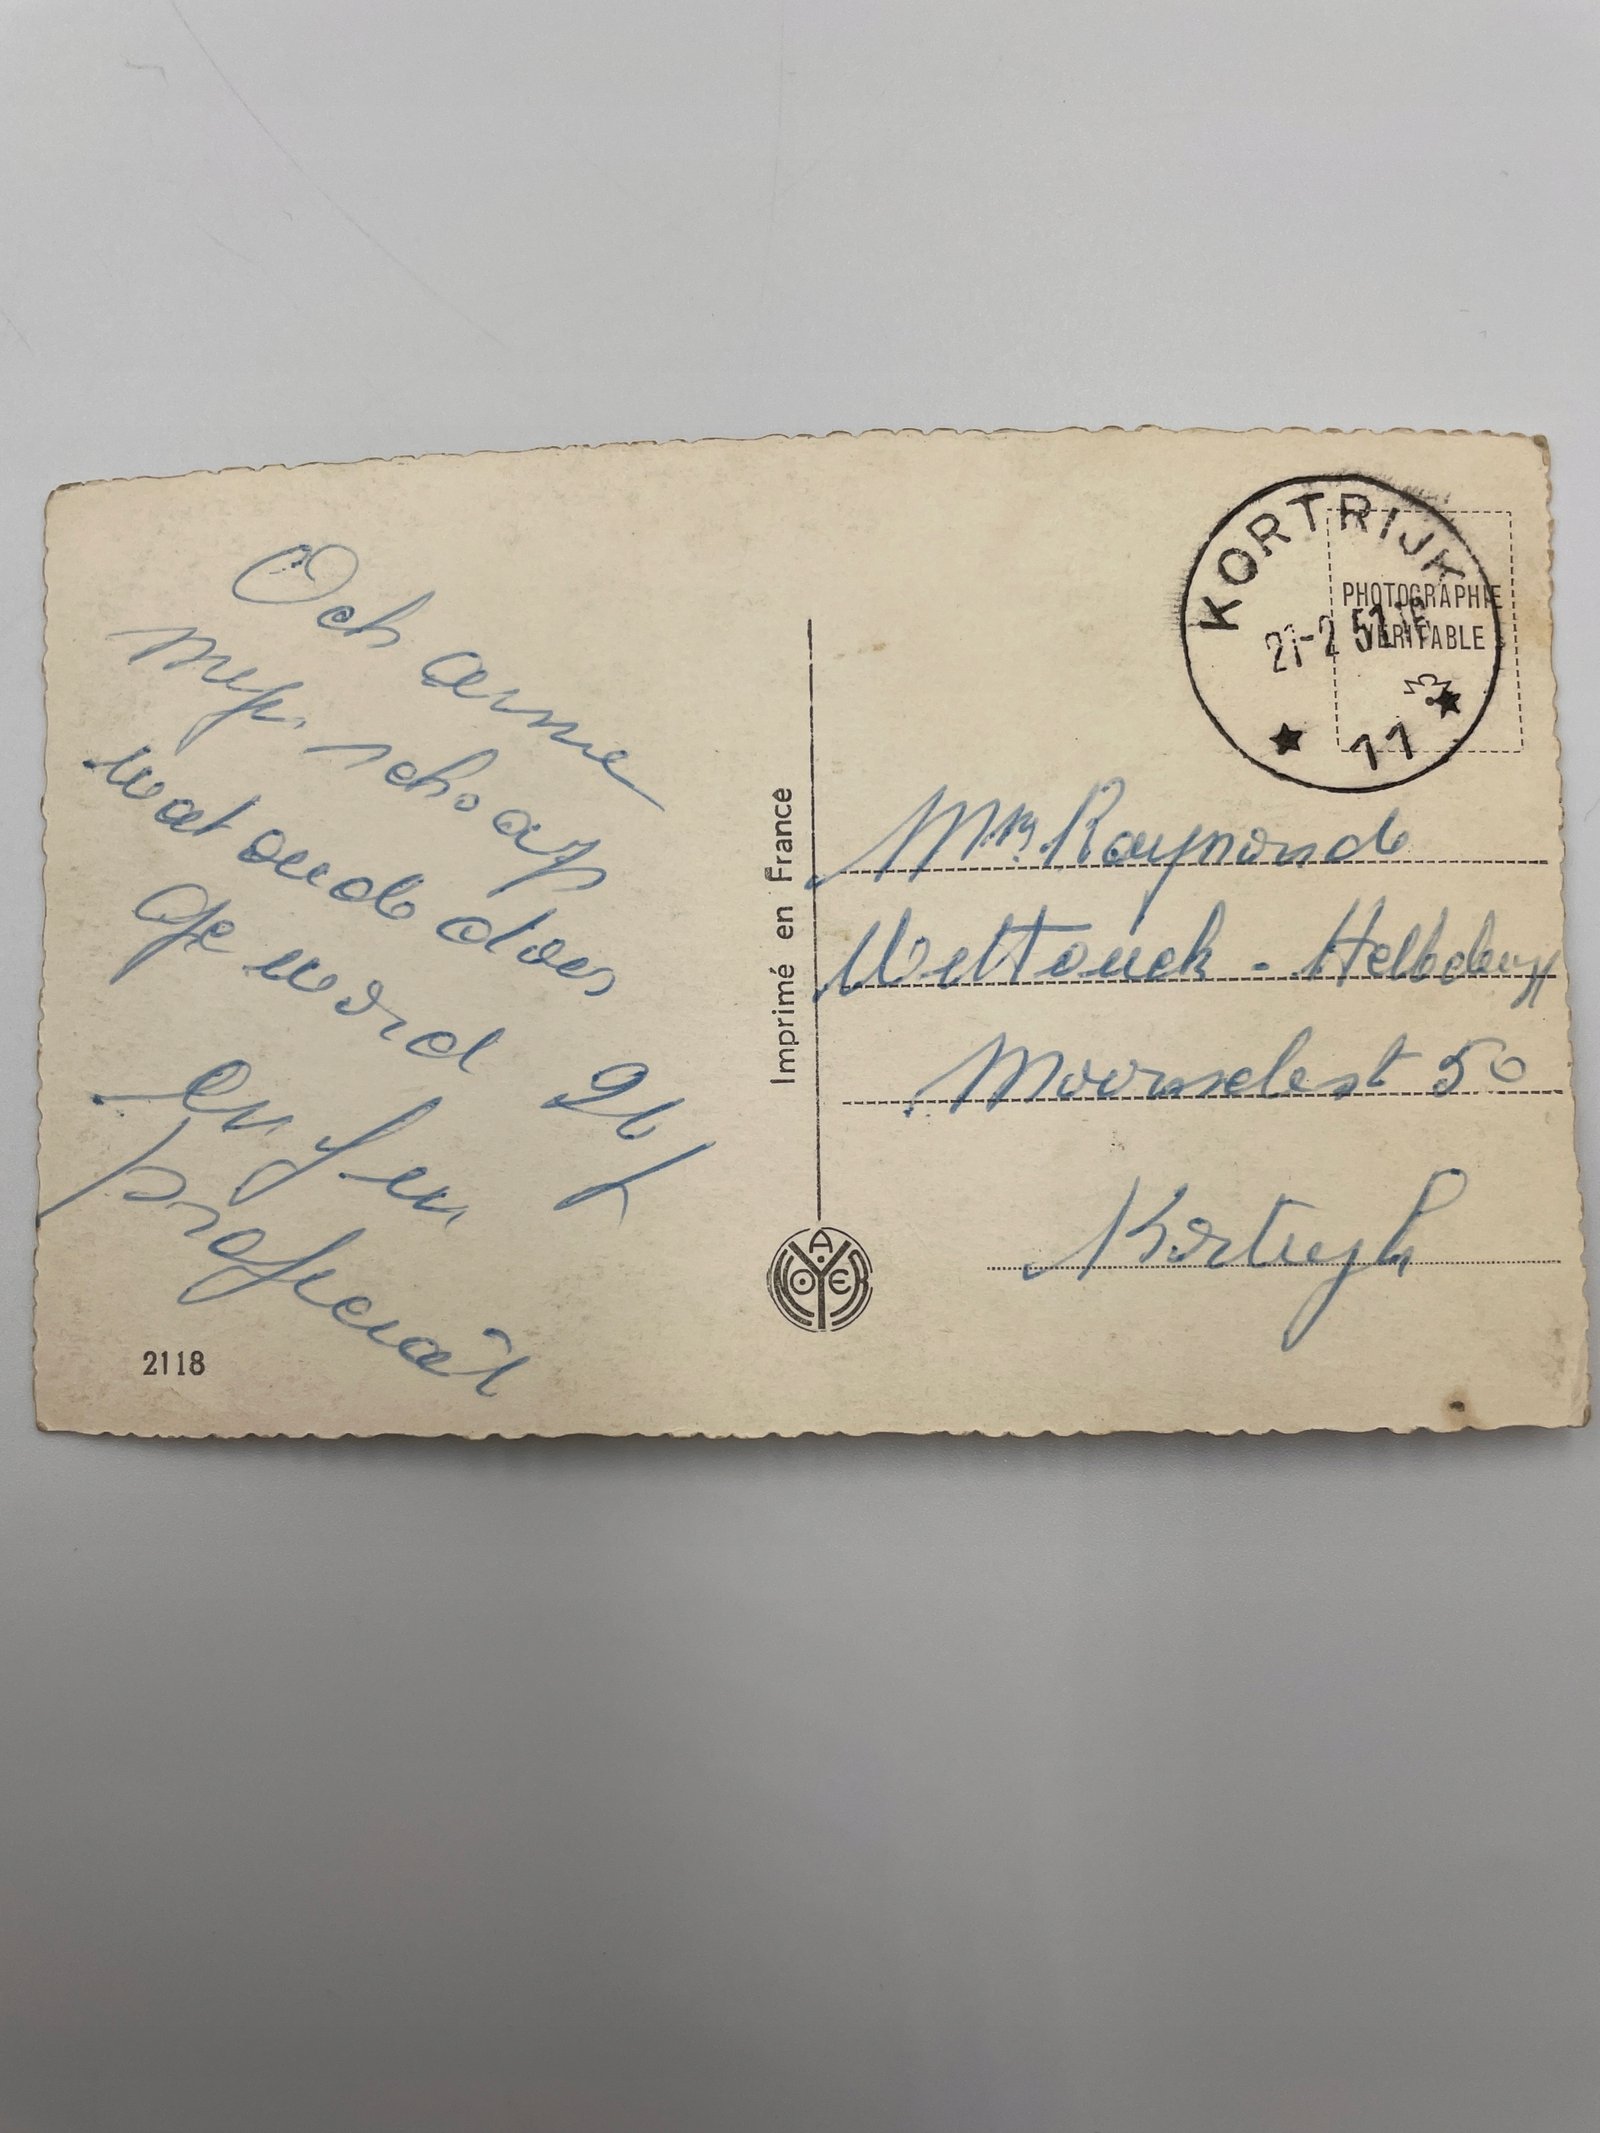 Och arme
mijn schaap
wat oude doos
Ge word 26 j
en j en
proficiat
2118
Imprimé en France
NOYER A
KORTRIJK
21-2 51
11
PHOTOGRAPHIE
VERITABLE
Mr Raymond
Wettouck - Helbdeuyn
Moorselest 50
Kortryk